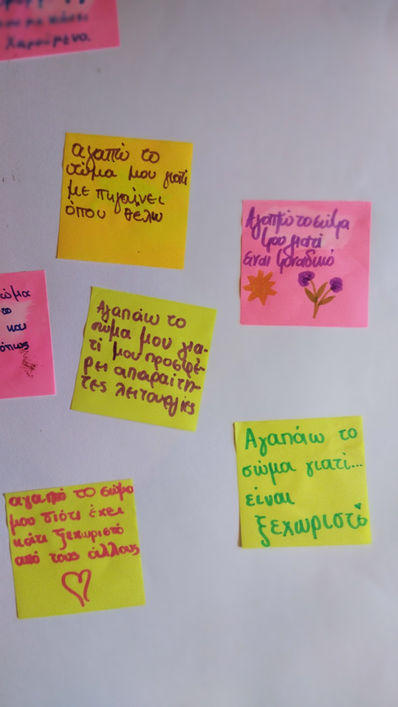 που με κάνει
χαρούμενο.
αγαπώ το
σώμα μου γιατί
με πηγαίνει
όπου θέλω
Αγαπώ το σώμα
μου γιατί
είναι μοναδικό
σώμα
το
και
όπως
Αγαπάω το
σώμα μου για-
τί μου προσφέ-
ρει απαραίτη-
τες λειτουργίες
Αγαπάω το
σώμα γιατί...
είναι
ξεχωριστό
αγαπώ το σώμα
μου διότι έχει
κάτι ξεχωριστό
από τους άλλους